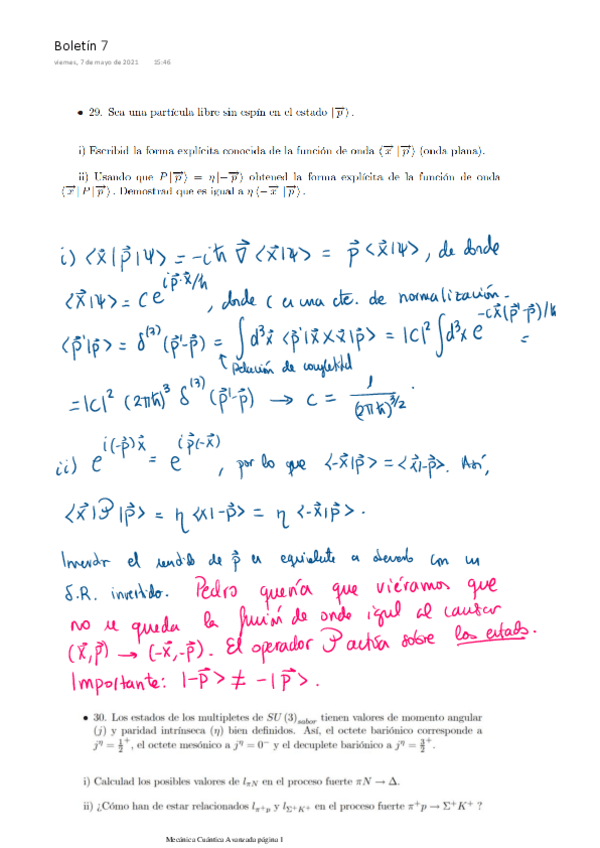 Boletín 7
viernes, 7 de mayo de 2021 15:46
• 29. Sea una partícula libre sin espín en el estado |p⃗⟩.
i) Escribid la forma explícita conocida de la función de onda ⟨x⃗ |p⃗⟩ (onda plana).
ii) Usando que P|p⃗⟩ = η|−p⃗⟩ obtened la forma explícita de la función de onda
⟨x⃗| P |p⃗⟩. Demostrad que es igual a η⟨−x⃗ |p⃗⟩.
i) ⟨x⃗|p⃗|Ψ⟩ = -iħ ∇⃗ ⟨x⃗|Ψ⟩ = p⃗ ⟨x⃗|Ψ⟩, de donde
⟨x⃗|Ψ⟩ = C e^{i p⃗·x⃗/ħ}, donde C es una cte. de normalización.
⟨p⃗'|p⃗⟩ = δ^{(3)}(p⃗'-p⃗) = ∫d³x⃗ ⟨p⃗'|x⃗⟩⟨x⃗|p⃗⟩ = |C|² ∫d³x e^{-ix⃗(p⃗'-p⃗)/ħ} =
↑ Relación de completitud
= |C|² (2πħ)³ δ^{(3)}(p⃗'-p⃗) → C = 1/(2πħ)^{3/2}.
ii) e^{i(-p⃗)x⃗} = e^{ip⃗(-x⃗)}, por lo que ⟨-x⃗|p⃗⟩ = ⟨x⃗|-p⃗⟩. Así,
⟨x⃗|P|p⃗⟩ = η ⟨x|-p⃗⟩ = η ⟨-x⃗|p⃗⟩.
Invertir el sentido de p⃗ es equivalente a observarlo con un
S.R. invertido. Pedro quería que viéramos que
no se queda la función de onda igual al cambiar
(x⃗,p⃗) → (-x⃗,-p⃗). El operador P actúa sobre los estados.
Importante: |-p⃗⟩ ≠ -|p⃗⟩.
• 30. Los estados de los multipletes de SU(3)_{sabor} tienen valores de momento angular
(j) y paridad intrínseca (η) bien definidos. Así, el octete bariónico corresponde a
j^η = 1/2^+, el octete mesónico a j^η = 0^− y el decuplete bariónico a j^η = 3/2^+.
i) Calculad los posibles valores de l_{πN} en el proceso fuerte πN → Δ.
ii) ¿Cómo han de estar relacionados l_{π+p} y l_{Σ+K+} en el proceso fuerte π^+p → Σ^+K^+ ?
Mecánica Cuántica Avanzada página 1